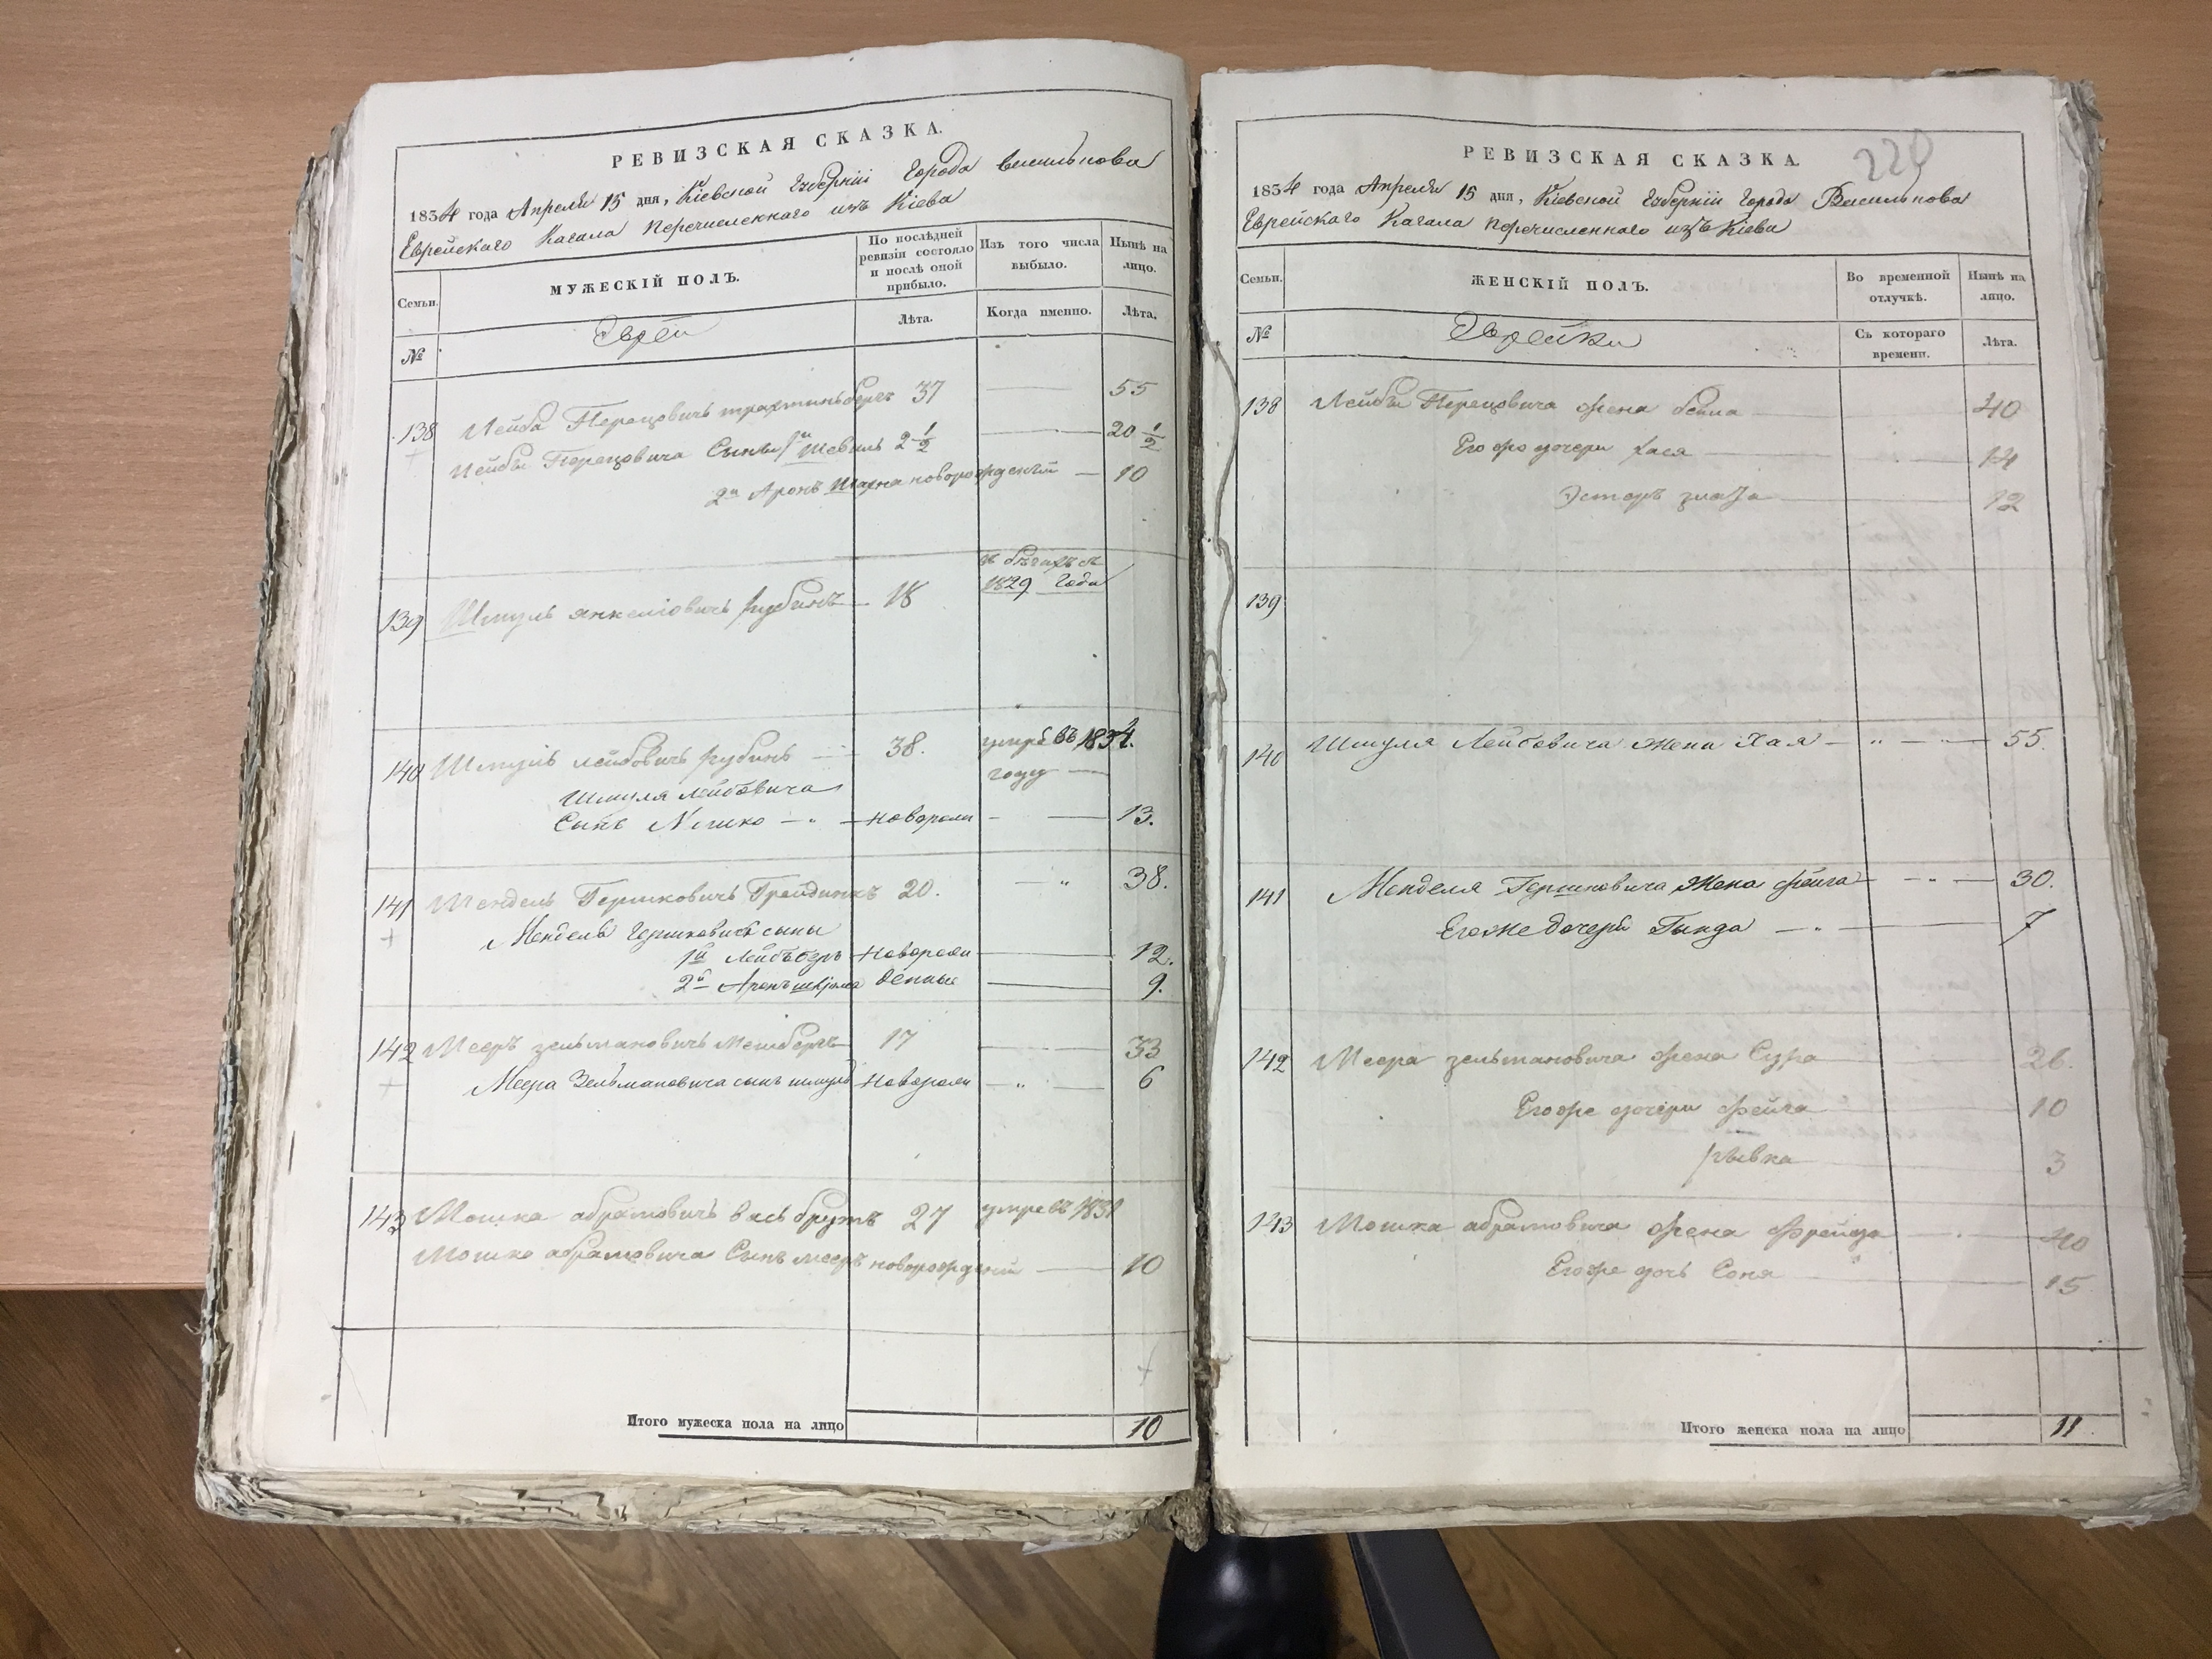 РЕВИЗСКАЯ СКАЗКА.
1834 года Апреля 15 дня, Кіевской Губерніи Города Василькова
Еврейскаго Кагала перечисленнаго изъ Кіева
Семьи.
МУЖЕСКІЙ ПОЛЪ.
По послѣдней ревизіи состояло и послѣ оной прибыло.
Изъ того числа выбыло.
Нынѣ на лицо.
№
Евреи
Лѣта.
Когда именно.
Лѣта.
138 Лейба Перецовичъ 37 — 55
Лейбы Перецовича Сыны 1й 2 1/2 — 20 1/2
2й Аронъ новорожденый — 10
въ бѣгахъ съ
1829 Года
139 Шмуль Янкеліовичъ Рубинъ — 18
140 Шмуль Лейбовичъ Рубинъ — 38. умре въ 1834.
году —
Шмуля Лейбовича
Сынъ Мошко — " — новорожд — — 13.
141 Мендель Гершковичъ 20. — " 38.
Мендель Гершковича сыны
1й Лейбъ Беръ новорож — 12.
2й Аронъ денные — 9.
142 Мееръ Зельмановичъ 17 — 33
Меера Зельмановича сынъ Шмуль новорож — " — 6
143 Мошка Абрамовичъ 27 умре въ 1831
Мошко Абрамовича Сынъ Мееръ новорожденый — 10
Итого мужеска пола на лицо 10
229
РЕВИЗСКАЯ СКАЗКА.
1834 года Апреля 15 дня, Кіевской Губерніи Города Василькова
Еврейскаго Кагала перечисленнаго изъ Кіева
Семьи.
ЖЕНСКІЙ ПОЛЪ.
Во временной отлучкѣ.
Нынѣ на лицо.
№
Еврейки
Съ котораго времени.
Лѣта.
138 Лейбы Перецовича жена Бейла — 40
Его же дочери Хася — 14
Эстеръ Злата — 12
139
140 Шмуля Лейбовича жена Хая — " — " — 55.
141 Менделя Гершковича жена Фейга — " — 30.
Его же дочери Гинда — " — 7
142 Меера Зельмановича жена Сура 26.
Его же дочери Фейга 10
Ривка 3
143 Мошка Абрамовича жена Фрейда 40
Его же дочь Соня 15
Итого женска пола на лицо 11